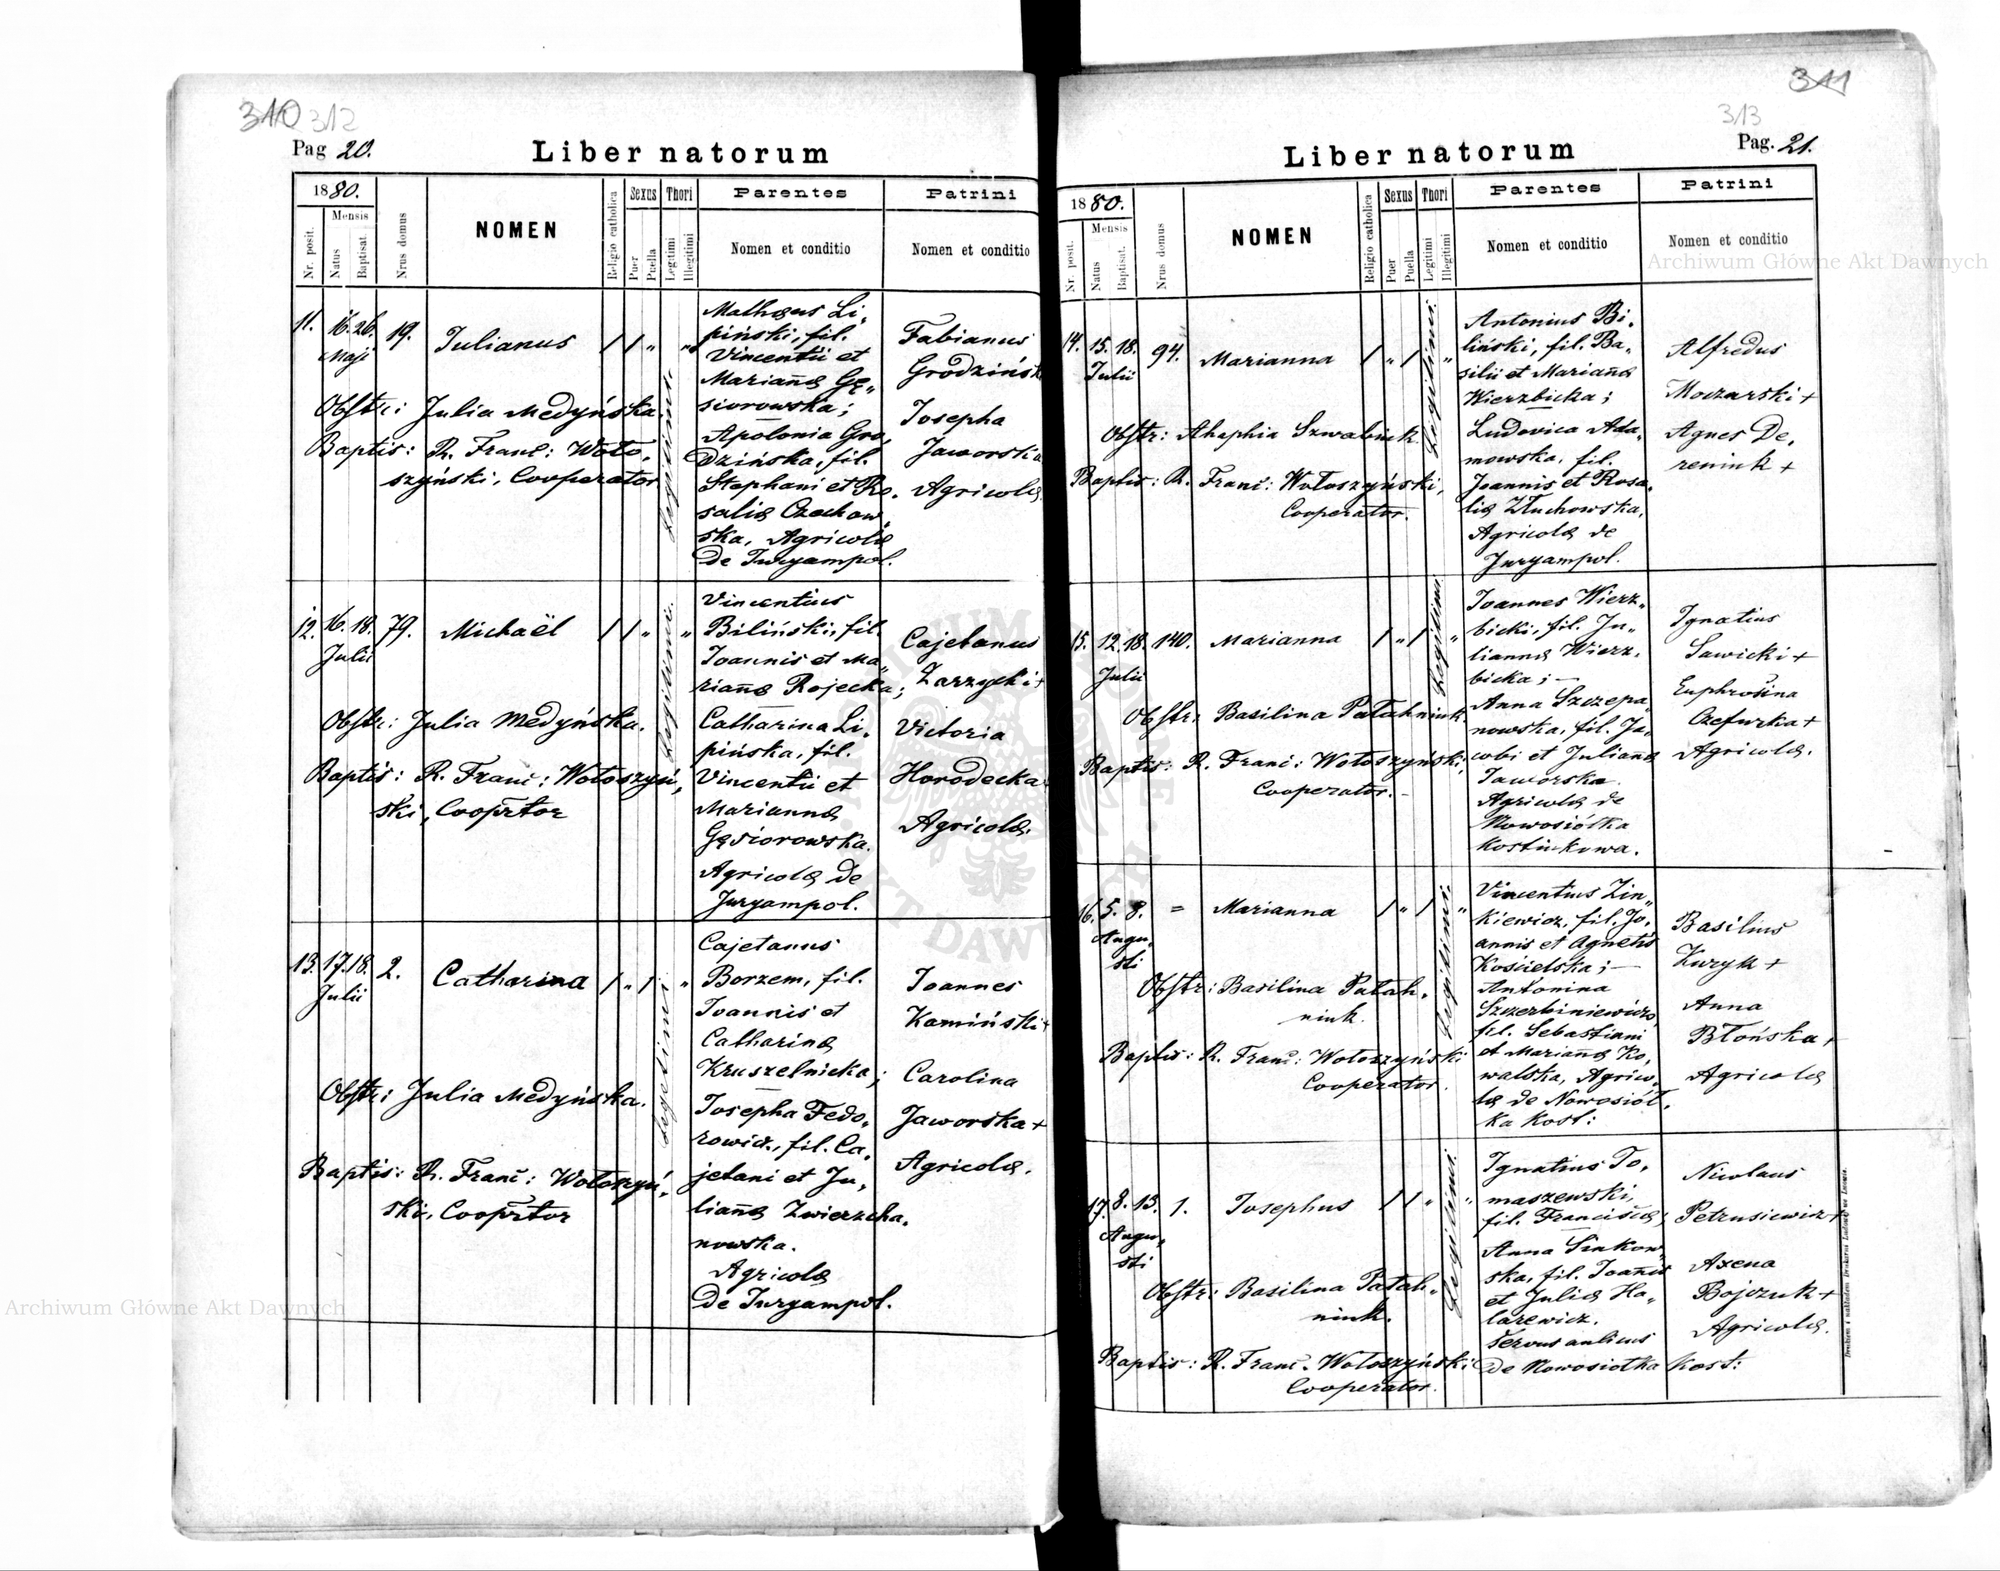 310 312
Pag 20.
Liber natorum
1880.
Nr. posit.
Mensis
Natus
Baptisat.
Nrus domus
NOMEN
Religio catholica
Sexus
Puer
Puella
Thori
Legitimi
Illegitimi
Parentes
Nomen et conditio
Patrini
Nomen et conditio
11. 16. 26. Maji 19. Julianus / / „ „
Legitimi.
Obstr: Julia Medyńska.
Baptis: R. Franc: Woło„
szyński, Cooperator
Mathæus Li„
piński, fil.
Vincentii et
Mariannæ Gę„
siorowska;
Apolonia Gro„
dzińska, fil.
Stephani et Ro„
saliæ Czechow„
ska, Agricolæ
de Juryampol.
Fabianus
Grodzińsk
Josepha
Jaworska
Agricolæ
12. 16. 18. Julii 79. Michaël / / „ „
Legitimi.
Obstr: Julia Medyńska.
Baptis: R. Franc: Wołoszyń„
ski, Cooprtor
Vincentius
Biliński, fil.
Joannis et Ma„
riannæ Rojecka;
Catharina Li„
pińska, fil.
Vincentii et
Mariannæ
Gęsiorowska.
Agricolæ de
Juryampol.
Cajetanus
Zarzycki +
Victoria
Horodecka
Agricolæ.
13. 17. 18. Julii 2. Catharina / „ / „
Legitimi
Obstr: Julia Medyńska.
Baptis: R. Franc: Wołoszyń„
ski, Cooprtor
Cajetanus
Borzem, fil.
Joannis et
Catharinæ
Kruszelnicka;
Josepha Fedo„
rowicz, fil. Ca„
jetani et Ju„
liannæ Zwierzcha„
nowska.
Agricolæ
de Juryampol.
Joannes
Kamiński +
Carolina
Jaworska +
Agricolæ.
311
313
Pag. 21.
Liber natorum
1880.
Nr. posit.
Mensis
Natus
Baptisat.
Nrus domus
NOMEN
Religio catholica
Sexus
Puer
Puella
Thori
Legitimi
Illegitimi
Parentes
Nomen et conditio
Patrini
Nomen et conditio
14. 15. 18. Julii 94. Marianna / „ / „
Legitimi.
Obstr: Ahaphia Szwabiuk
Baptis: R. Franc: Wołoszyński,
Cooperator.
Antonius Bi„
liński, fil. Ba„
silii et Mariannæ
Wierzbicka;
Ludovica Ada„
mowska, fil.
Joannis et Rosa„
liæ Złuchowska,
Agricolæ de
Juryampol.
Alfredus
Moczarski +
Agnes De„
reniuk +
15. 12. 18. Julii 140. Marianna / „ / „
Legitimi
Obstr: Basilina Patahniuk
Baptis: R. Franc: Wołoszyński,
Cooperator.-
Joannes Wierz„
bicki, fil. Ju„
liannæ Wierz„
bicka;-
Anna Szczepa„
nowska, fil. Ja„
cobi et Juliannæ
Jaworska
Agricolæ de
Nowosiółka
Kostiukowa.
Ignatius
Sawicki +
Euphrosina
Czefurka +
Agricolæ.
16. 5. 8. Augu„
sti = Marianna / „ / „
Legitimi.
Obstr: Basilina Patah„
niuk.
Baptis: R. Franc: Wołoszyński
Cooperator.
Vincentius Zin„
kiewicz, fil. Jo„
annis et Agnetis
Kościelska;-
Antonina
Szczerbiniewicz,
fil. Sebastiani
et Mariannæ Ko„
walska, Agrico„
læ de Nowosiół„
ka Kost:
Basilius
Kuzyk +
Anna
Błońska +
Agricolæ
17. 8. 13. Augu„
sti 1. Josephus / / „ „
Legitimi.
Obstr: Basilina Patah„
niuk.
Baptis: R. Franc. Wołoszyński
Cooperator.
Ignatius To„
maszewski,
fil. Franciscæ;
Anna Sinkow„
ska, fil. Joannis
et Juliæ Ha„
larewicz.
Servus aulicus
de Nowosiółka Kost:
Nicolaus
Petrusiewicz +
Axena
Bojczuk +
Agricolæ.
Archiwum Główne Akt Dawnych
Archiwum Główne Akt Dawnych